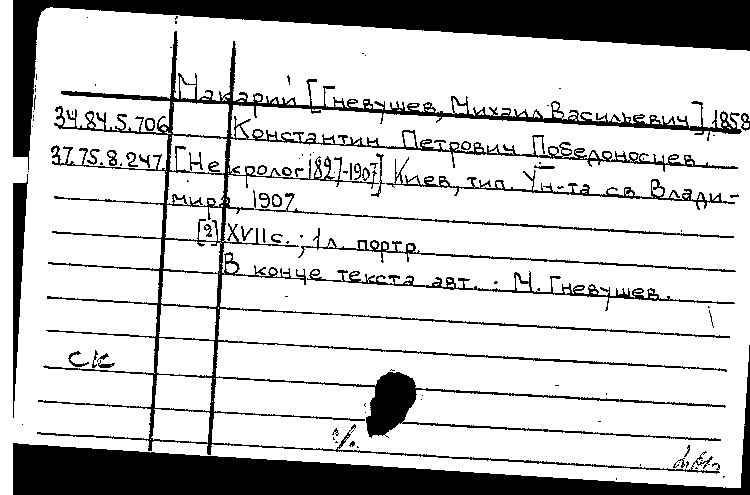 Макарий [Гневушев, Михаил Васильевич], 1858
34.84.5.706 Константин Петрович Победоносцев.
37.75.8.247. [Некролог 1827-1907] Киев, тип. Ун-та св. Влади-
мира, 1907.
[2] XVII с.; 1 л. портр.
В конце текста авт.: М. Гневушев.
СК